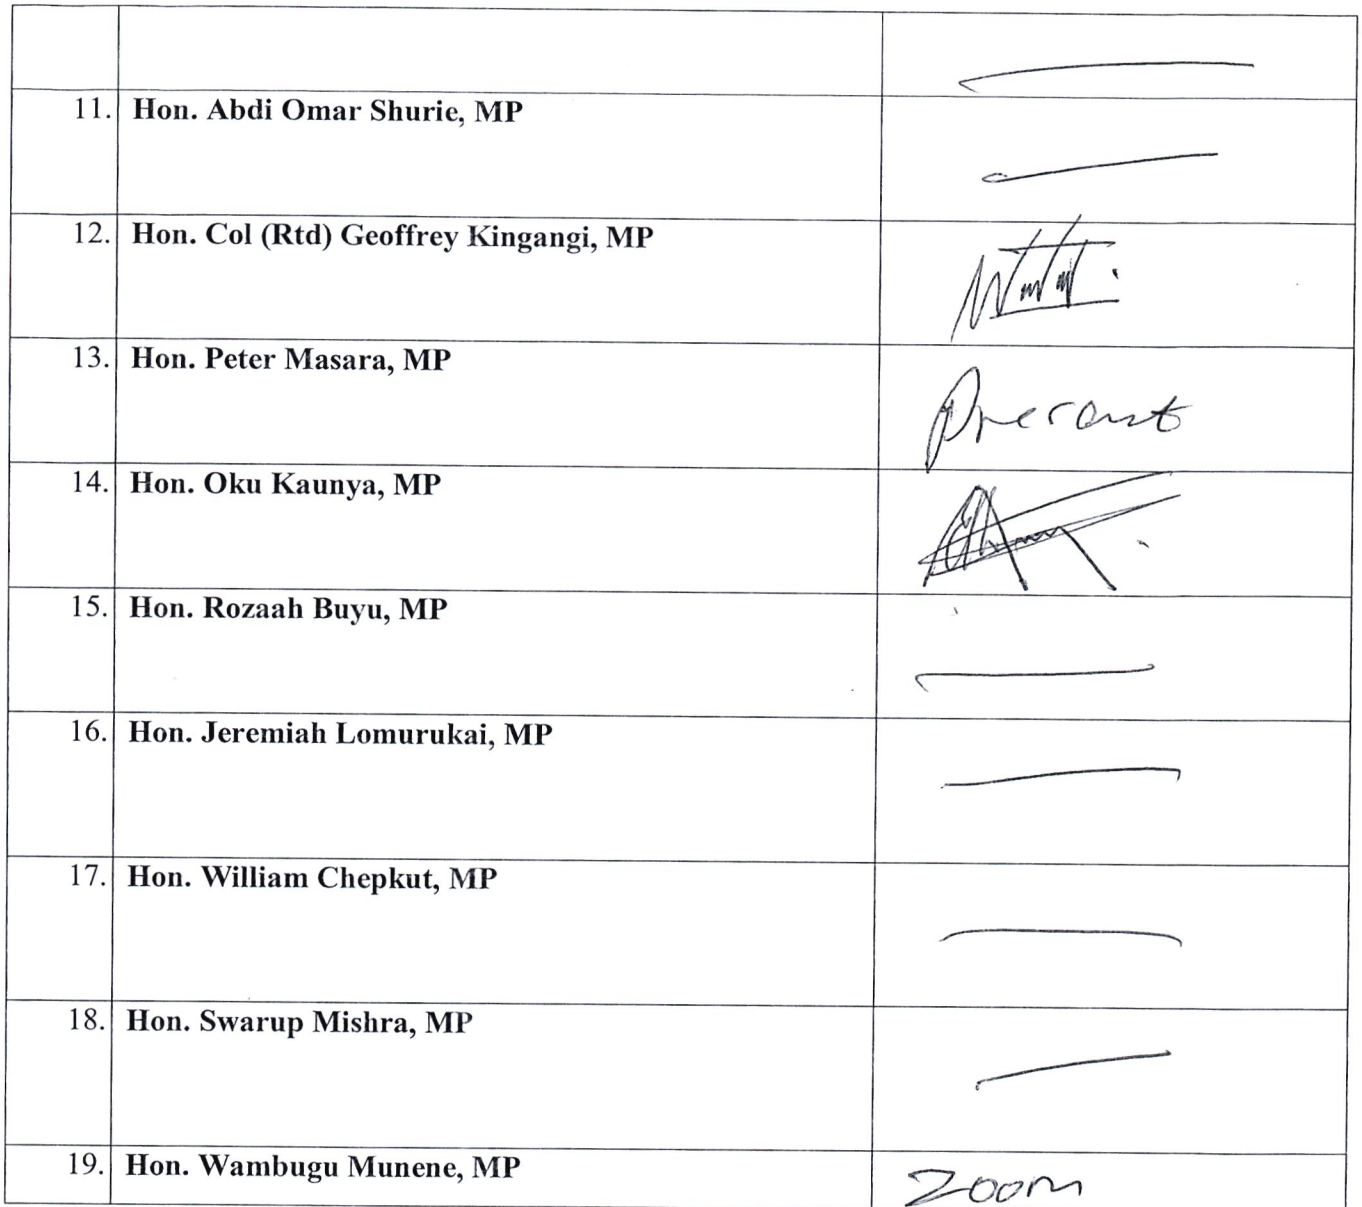 11. Hon. Abdi Omar Shurie, MP
12. Hon. Col (Rtd) Geoffrey Kingangi, MP
13. Hon. Peter Masara, MP Present
14. Hon. Oku Kaunya, MP
15. Hon. Rozaah Buyu, MP
16. Hon. Jeremiah Lomurukai, MP
17. Hon. William Chepkut, MP
18. Hon. Swarup Mishra, MP
19. Hon. Wambugu Munene, MP Zoom